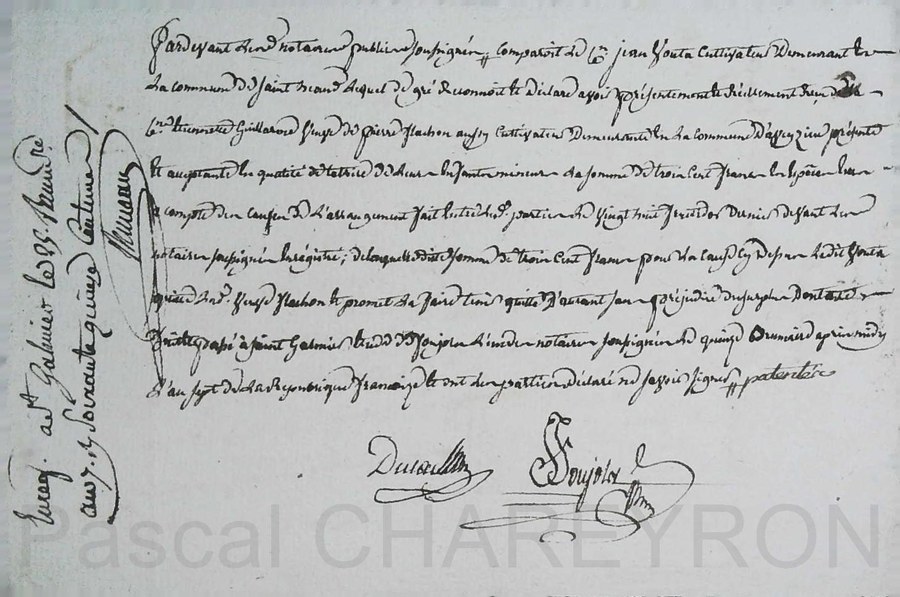 Pardevant les notaires publics soussignés, comparoit le Cen jean Youta Cultivateur Demeurant en
la commune de Saint lequel de gré reconnoit et déclare avoir présentement et réellement reçu de la
Cne Guillarme veuve de pierre flachon aussy Cultivateur Demeurante en la commune D'aveyzieu présente
et acceptante en qualité de tutrice de leurs Enfants mineurs la somme de trois Cent francs En Espèces
à compte des causes de l'arrangement fait Entre les parties le vingt huit dernier devant les
notaires soussignés Enregistré; de laquelle dite somme de trois Cent francs pour la cause Cy dessus ledit Youta
quitte lad. veuve flachon et promet la faire tenir quitte D'autant sans préjudice du surplus Dont acte
fait et passé à saint Galmier Etude de Soujolas l'un des notaires soussignés le quinze Brumaire après midy
L'an sept de la République française et ont les parties déclaré ne savoir signer patentés
Soujolas
Enreg. a St Galmier le 25 Brumre.
an 7. R Soixante quinze Centimes
Pascal CHAREYRON